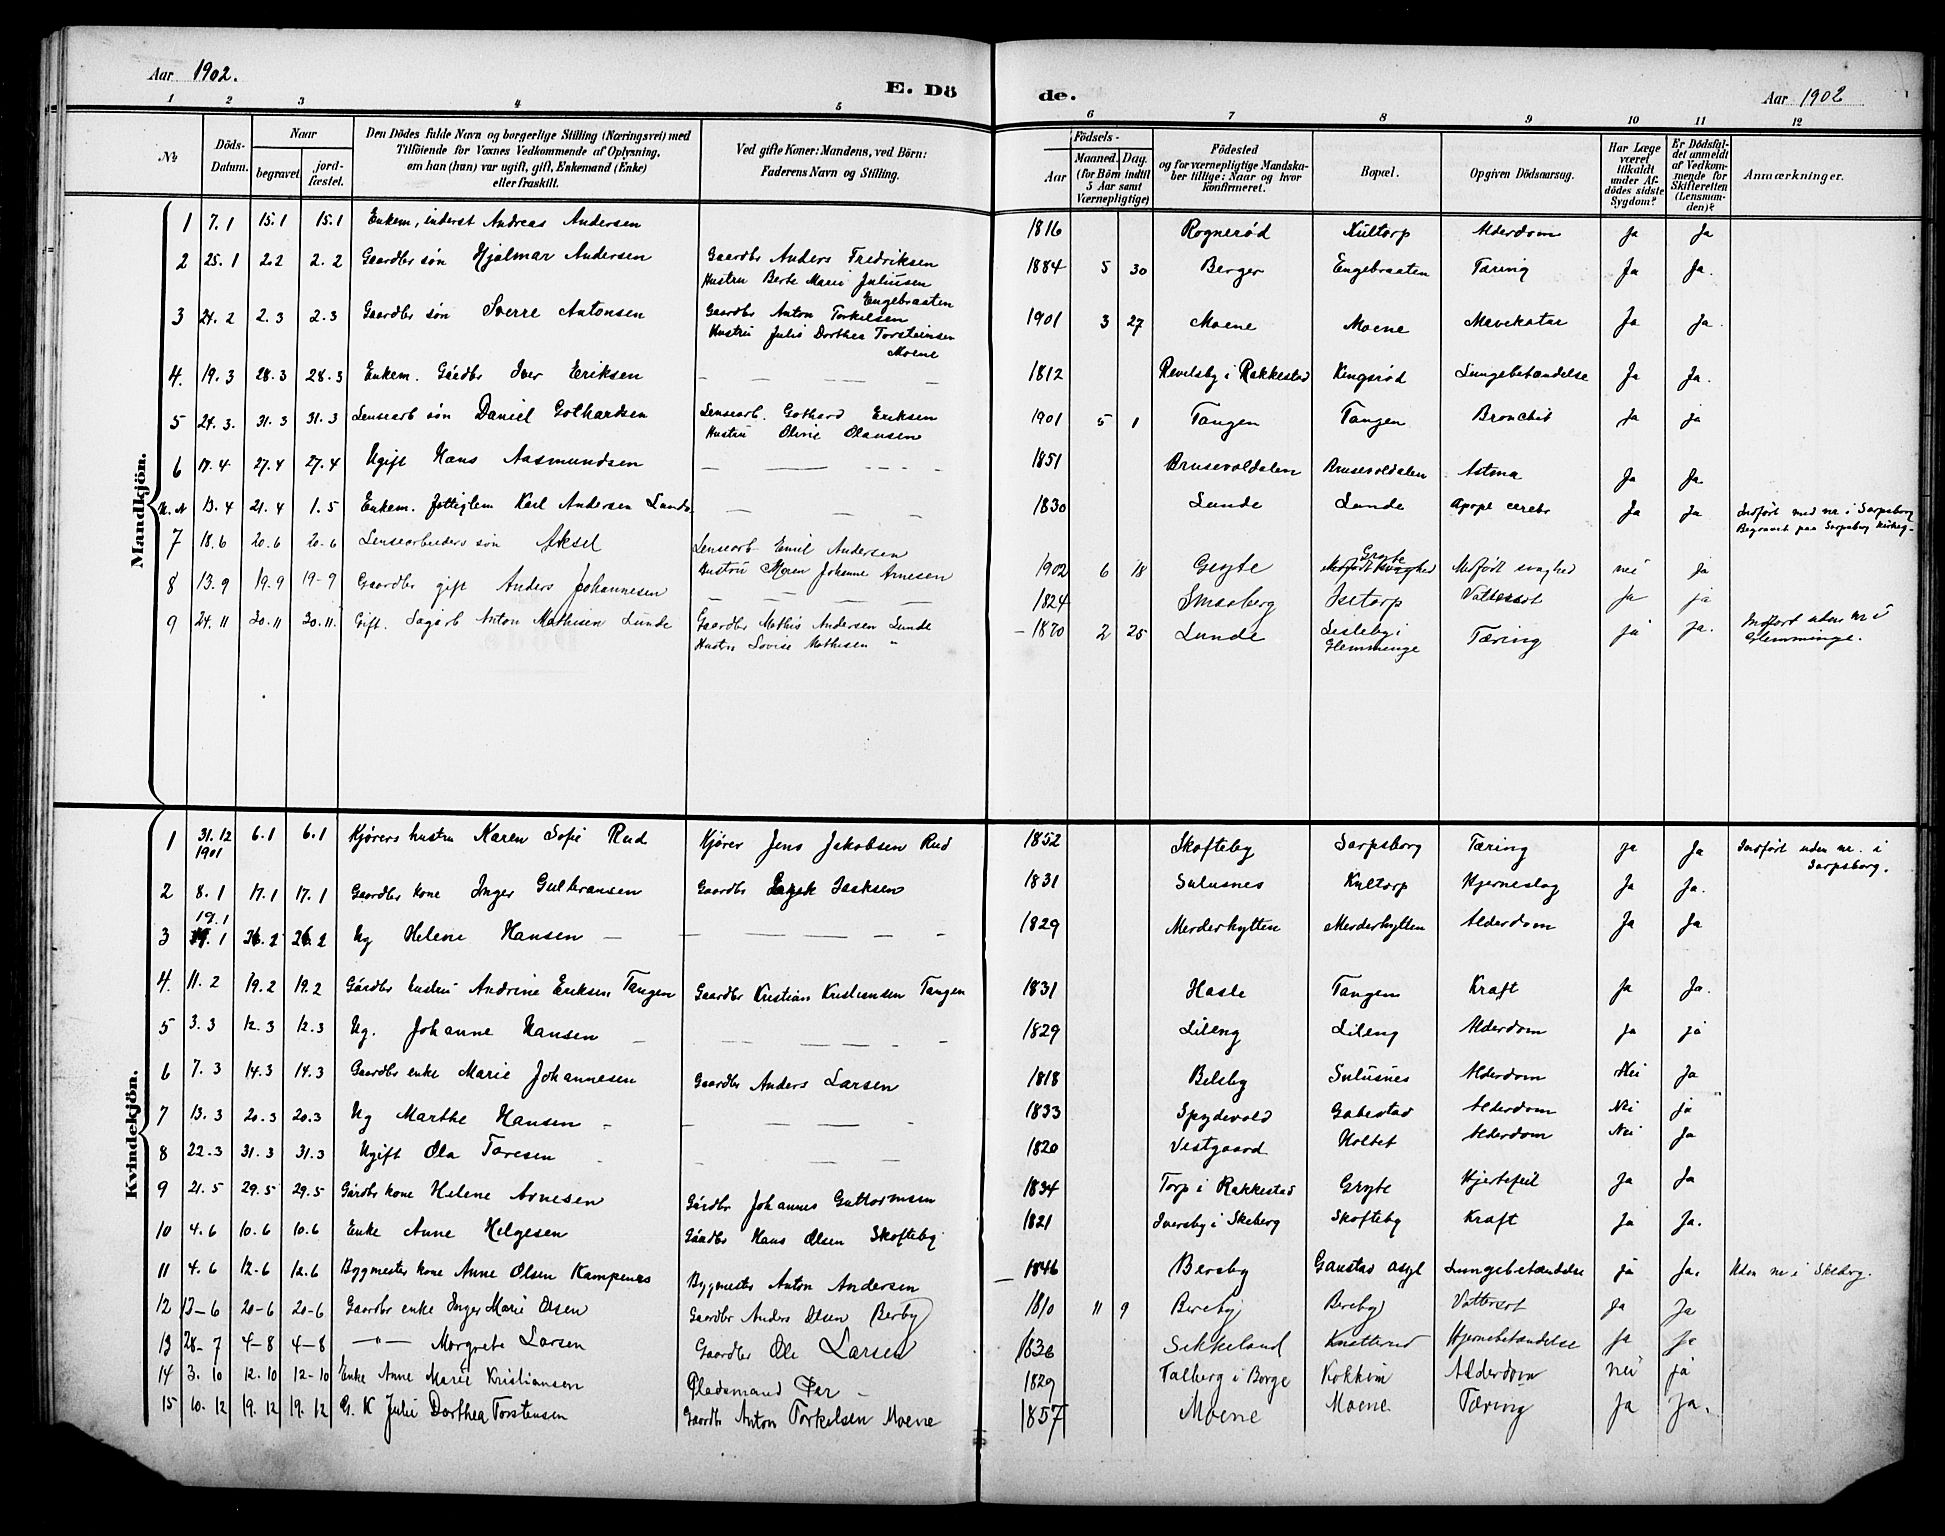 Aar 1902.
E. Dö de.
Aar 1902
1 2 3 4 5 6 7 8 9 10 11 12
№ Döds-Datum. Naar begravet jord-fæstet. Den Dödes fulde Navn og borgerlige Stilling (Næringsvei) med Tilföiende for Voxnes Vedkommende af Oplysning, om han (hun) var ugift, gift, Enkemand (Enke) eller fraskilt. Ved gifte Koner: Mandens, ved Börn: Faderens Navn og Stilling. Födsels- Aar Maaned. Dag. (for Börn indtil 5 Aar samt Værnepligtige) Födested og for værnepligtige Mandska-ber tillige: Naar og hvor konfirmeret. Bopæl. Opgiven Dödsaarsag. Har Læge været tilkaldt under Af-dödes sidste Sygdom? Er Dödsfal-det anmeldt af Vedkom-mende for Skifteretten (Lensman-den)? Anmærkninger.
Mandkjön.
1 7.1 15.1 15.1 Enkem, inderst Andreas Andersen 1816 Rognerød Kultorp Alderdom Ja Ja
2 25.1 2.2 2.2 Gaardbr søn Hjalmar Andersen Gaardbr Anders Fredriksen 1884 5 30 Berger Engebraaten Tæring Ja Ja.
Hustru Berte Marie Juliusen
Engebraaten
3 24.2 2.3 2.3 Gaardbr søn Sverre Antonsen Gaardbr Anton Torkelsen 1901 3 27 Moene Moene Mavekatar Ja Ja.
Hustru Julie Dorthea Torsteinsen
Moene
4. 19.3 28.3 28.3 Enkem. Gårdbr Iver Eriksen — — — 1812 Revilsby i Rakkestad Kingsrød Lungebetændelse Ja Ja.
5 24.3. 31.3 31.3 Lensearb søn Daniel Gothardsen Lensearb. Gothard Eriksen 1901 5 1 Tangen Tangen Bronchit Ja ja
Hustru Oline Olausen
6 17.4 27.4 27.4 Ugift Hans Aasmundsen — — — 1851 Brusevoldalen Brusevoldalen Astma Ja Ja
U.N 13.4 21.4 1.5 Enkem. Karl Andersen Lunde — — — 1830 Lunde Lunde Apopl cerebr Ja Ja Indført med nr i Sarpsborg
Begravet paa Sarpsborg kirkeg-
7 18.6 20.6 20-6 Lensearbeiders søn Aksel Lensearb Emil Andersen
Hustru Maren Johanne Arnesen 1902 6 18 Gryte Gryte Medfødt svaghed nei Ja
8 13.9 19.9 19-9 Gaardbr gift Anders Johannesen — — — 1824 Smaaberg Isetorp Vattersot Ja ja
9 24.11 30.11 30.11. Gift. Sagarb Anton Mathisen Lunde Gaardbr Mathis Andersen Lunde — 1870 2 25 Lunde Lisleby i Glemminge Tæring ja Ja. Indført uden nr i
Hustru Lovise Mathisen " Glemminge.
Kvindekjön.
1 31.12 1901 6.1 6.1 Kjørers hustru Karen Sofie Rud Kjører Jens Jakobsen Rud 1852 Skofteby Sarpsborg Tæring ja Ja Indført uden nr. i
Sarpsborg.
2 8.1 17.1 17.1 Gaardbr kone Inger Gulbransen Gaardbr Isaksen 1831 Sulusnes Kultorp Hjerneslag Ja Ja.
3 19.1 26.2 26.2 Ug Helene Hansen — — — — 1829 Merderhytten Merderhytten Alderdom Ja Ja
4. 11.2 19.2 19.2 Gårdbr hustru Andrine Eriksen Tangen Gaardbr Kristian Kristiansen Tangen 1831 Hasle Tangen Kraft Ja Ja.
5 3.3 12.3 12.3 Ug. Johanne Hansen — — — 1829 Lileng Lileng Alderdom Ja ja
6 7.3 14.3 14.3 Gaardbr enke Marie Johannesen Gaardbr Anders Larsen 1818 Belsby Sulusnes Alderdom Nei Ja
7 13.3 20.3 20.3 Ug Marthe Hansen — — — 1833 Spydevold Gabestad Alderdom Nei ja
8 22.3 31.3 31.3 Ugift Ola Taresen — — — 1820 Vestgaard Holtet Alderdom Nei Ja
9 21.5 29.5 29.5 Gårdbr kone Helene Arnesen Gårdbr Johannes Guttormsen 1834 Torp i Rakkestad Gryte Hjertefeil Ja Ja
10 4.6 10.6 10.6 Enke Anne Helgesen Gårdbr Hans Olsen Skofteby 1821 Iversby i Skeberg Skofteby Kraft Ja Ja.
11 4.6 12-6 12.6 Bygmester kone Anne Olsen Kampenes Bygmester Anton Andersen — 1846 Bersby Gaustad asyl Lungebetændelse ja Ja. Uden nr i Skeberg.
12 13-6 20-6 20-6 Gaardbr enke Inger Marie Olsen Gaardbr Anders Olsen Berby 1810 11 9 Bereby Bereby Vattersot Ja Ja
13 28-7 4-8 4-8 —"— Margrete Larsen Gaardbr Ole Larsen 1836 Sikkeland Knatterud Hjernebetændelse Ja Ja
14 3.10 12.10 12-10 Enke Anne Marie Kristiansen Pladsmand Per — 1829 Talberg i Borge Kokkim Alderdom nei ja
15 10.12 19.12 19.12 G. K Julie Dorthea Torstensen Gaardbr Anton Torkelsen Moene 1857 Moene Moene Tæring Ja Ja.